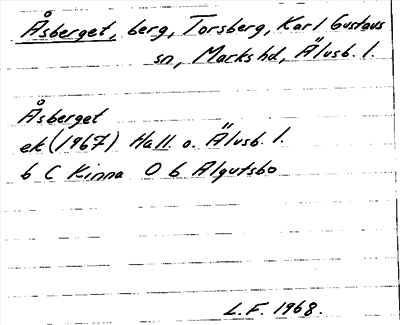 Åsberget, berg, Torsberg, Karl Gustavs
sn, Marks hd, Älvsb. l.
Åsberget
ek (1967) Hall. o. Älvsb. l.
b C Kinna O b Algutsbo
L.F. 1968.